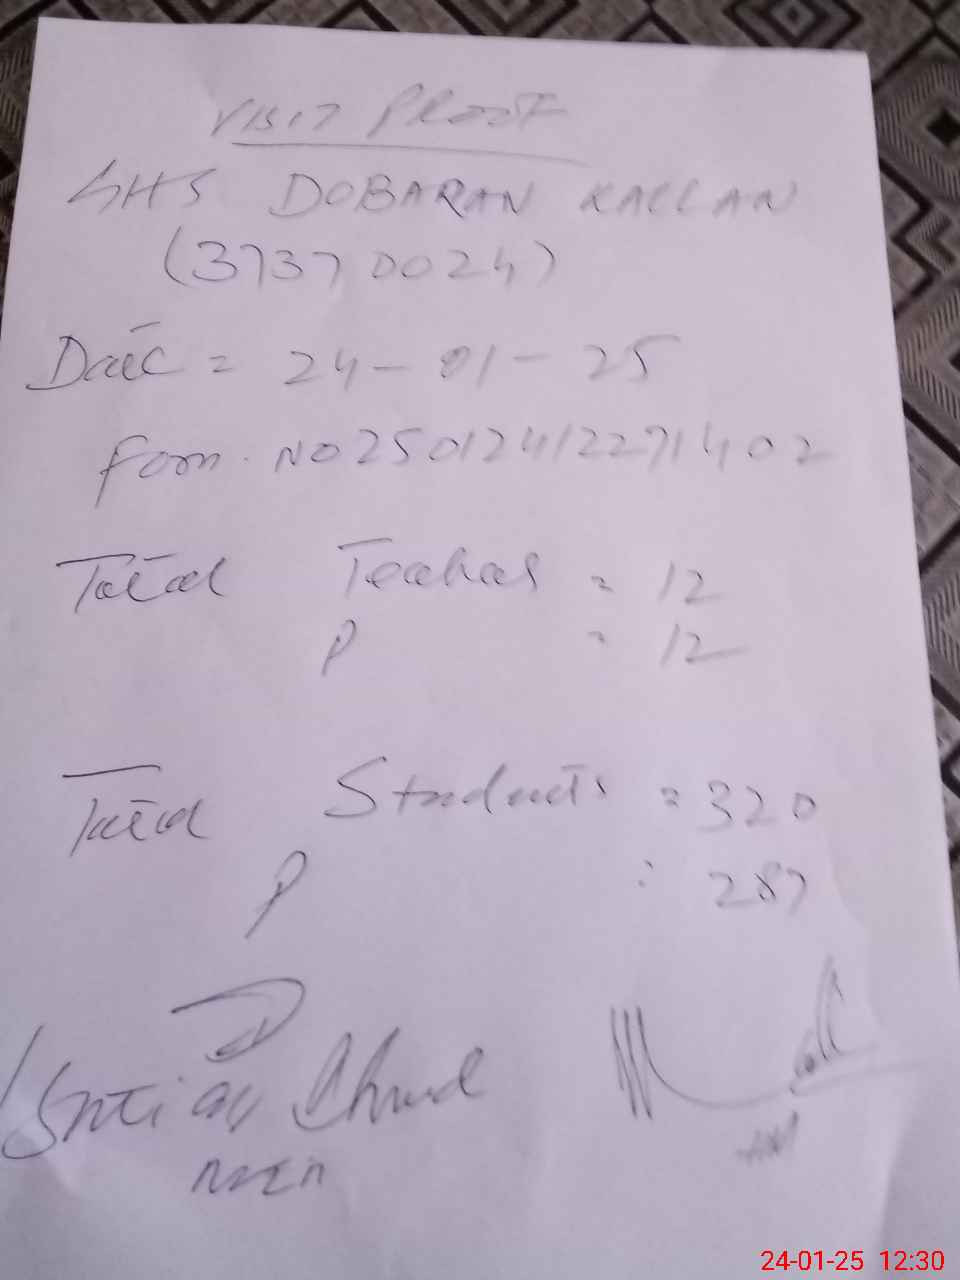 VISIT PROOF
GHS DOBARAN KALLAN
(37370024)
Date = 24-01-25
Form. NO 250124122271402
Total Teachers = 12
P = 12
Total Students = 320
P : 287
Ishtiaq Ahmed
HM
24-01-25 12:30